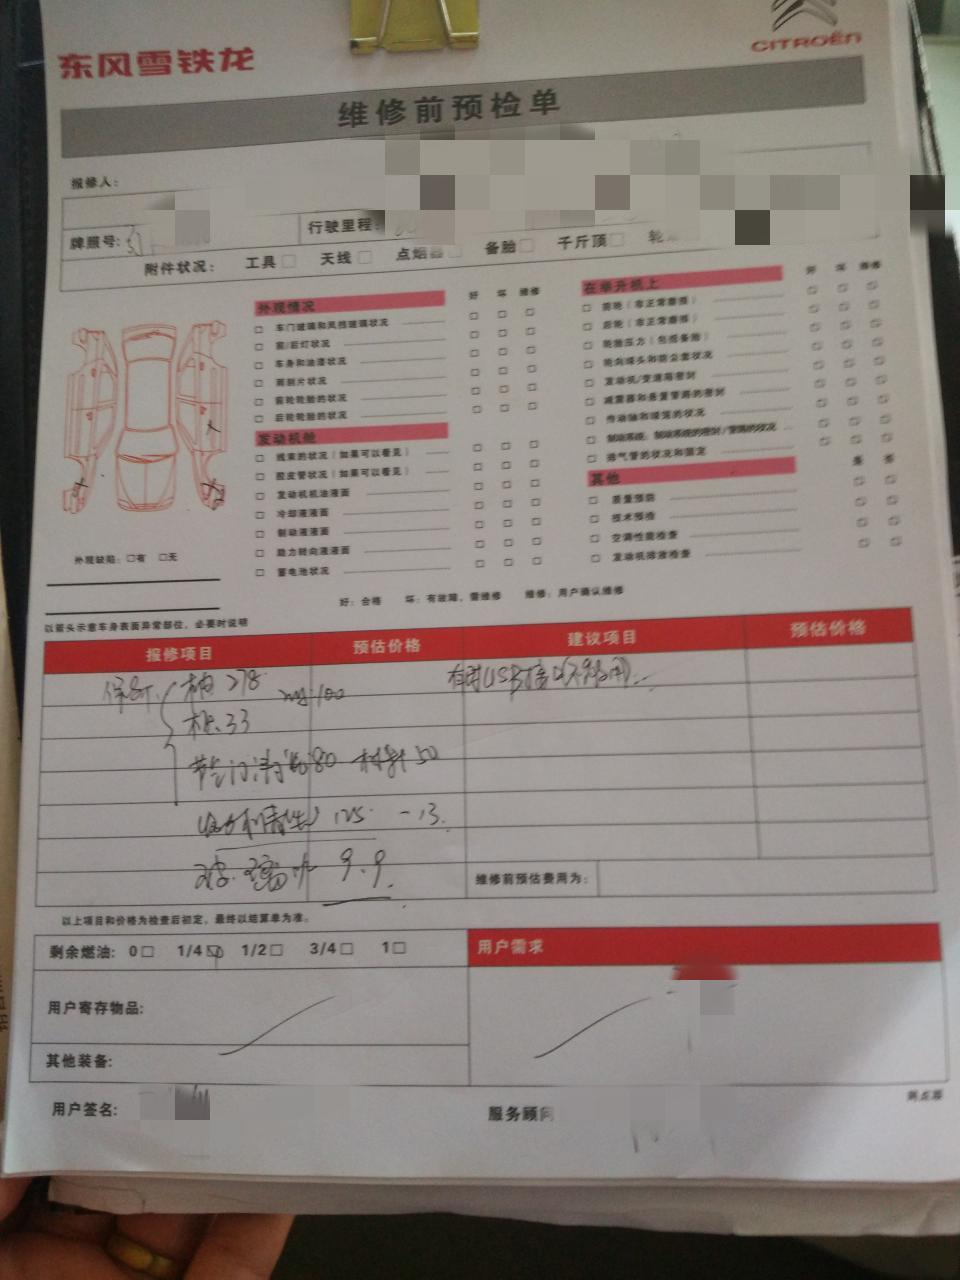 东风雪铁龙
CITROËN
维修前预检单
报修人:
牌照号:
行驶里程:
附件状况: 工具□ 天线□ 点烟器□ 备胎□ 千斤顶□
外观情况 好 坏 维修
□ 车门玻璃和风挡玻璃状况
□ 前/后灯状况
□ 车身和油漆状况
□ 雨刮片状况
□ 前轮轮胎的状况
□ 后轮轮胎的状况
发动机舱
□ 线束的状况(如果可以看见)
□ 胶皮管状况(如果可以看见)
□ 发动机机油液面
□ 冷却液液面
□ 制动液液面
□ 助力转向液液面
□ 蓄电池状况
在举升机上 好 坏 维修
□ 前轮(非正常磨损)
□ 后轮(非正常磨损)
□ 轮胎压力(包括备胎)
□ 轮向球头和防尘套状况
□ 发动机/变速箱密封
□ 减震器和悬置管路的密封
□ 传动轴和護笼的状况
□ 制动系统:制动系统的密封/管路的状况
□ 排气管的状况和固定
其他 是 否
□ 质量预防
□ 技术预检
□ 空调性能检查
□ 发动机排放检查
外观缺陷: □有 □无
好: 合格 坏: 有故障、需维修 维修: 用户确认维修
以箭头示意车身表面异常部位,必要时说明
报修项目 预估价格 建议项目 预估价格
机油 278
33
节气门清洗 80 材料 50
125 -13.
玻璃水 9.9
维修前预估费用为:
以上项目和价格为检查后初定,最终以结算单为准。
剩余燃油: 0□ 1/4☑ 1/2□ 3/4□ 1□
用户需求
用户寄存物品:
其他装备:
用户签名:
服务顾问
网点联